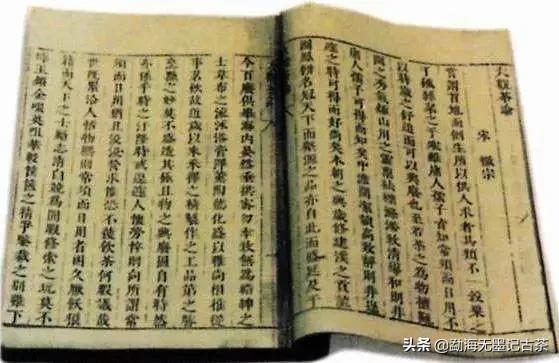 大觀茶論
宋 徽宗
嘗謂首地而倒生所以供人求者其類不一穀粟之
于飢絲枲之于寒雖庸人孺子皆知常須而日用不
以時歲之舒迫而可以興廢也至若茶之為物擅甌
閩之秀氣鍾山川之靈稟祛襟滌滯致清導和則非
庸人孺子可得而知矣沖澹簡潔韻高致靜則非遑
遽之時可得而好尚矣本朝之興歲修建溪之貢龍
團鳳餅名冠天下而壑源之品亦自此而盛延及于
今百廢俱舉海內晏然垂拱密勿幸致無為縉紳之
士韋布之流沐浴膏澤薰陶德化盛以雅尚相推從
事茗飲故近歲以來採擇之精製作之工品第之勝
烹點之妙莫不盛造其極且物之興廢固自有然
亦係乎時之汙隆時或遑遽人懷勞悴則向所謂常
須而日用猶且汲汲營求惟恐不獲飲茶何暇議哉
世既累洽人恬物熙則常須而日用者因久厭飫狼
籍而天下之士勵志清白競為閒暇修索之玩莫不
碎玉鏘金啜英咀華較筐篋之精爭鑒裁之別雖下
头条 @勐海无墨记古茶